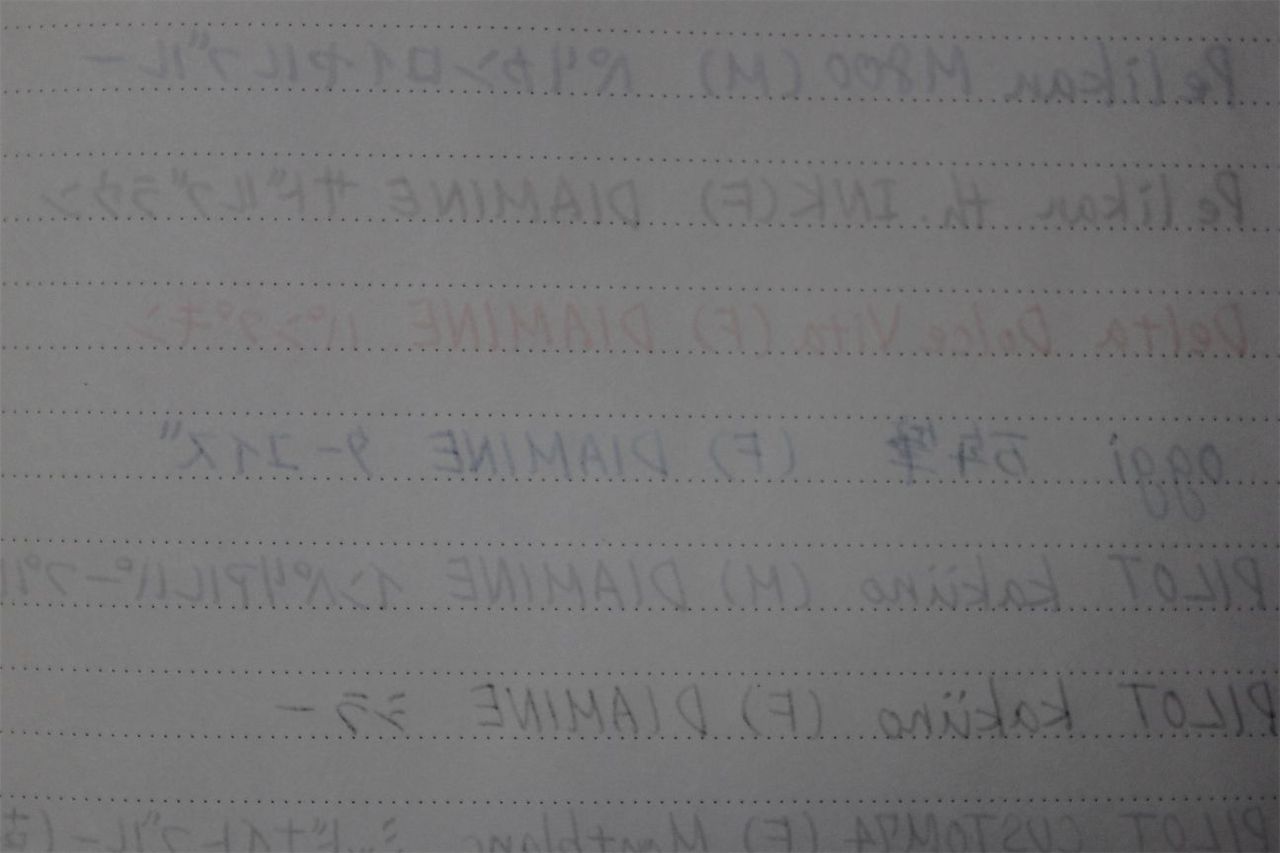 Pelikan M800 (M) ペリカンロイヤルブルー
Pelikan th. INK (F) DIAMINE サドルブラウン
Delta Dolce Vita (F) DIAMINE パンプキン
oggi 万年筆 (F) DIAMINE ターコイズ
PILOT kaküno (M) DIAMINE インペリアルパープル
PILOT kaküno (F) DIAMINE ミラー
PILOT CUSTOM74 (F) Montblanc ミッドナイトブルー (古